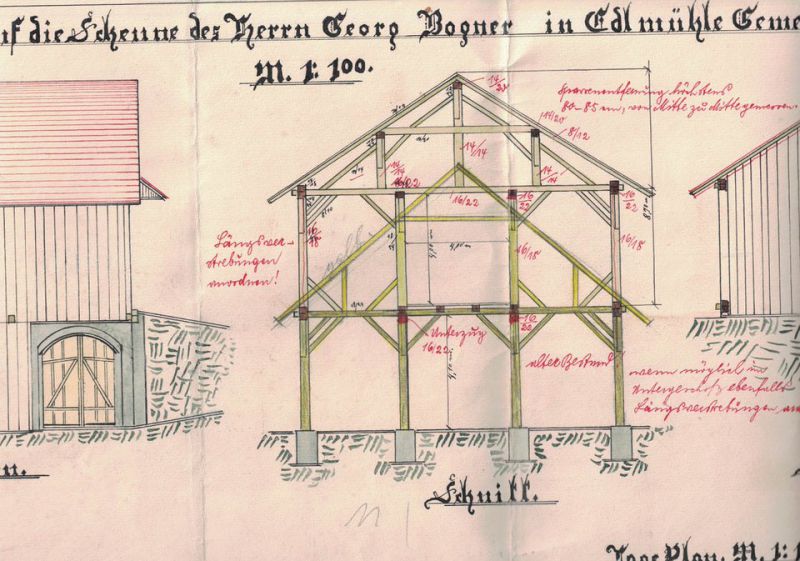 uf die Scheune des Herrn Georg Bogner in Edlmühle Geme
M. 1:100.
14/20
Sparrenentfernung höchstens
80-85 cm, von Mitte zu Mitte gemessen.
14/20
8/12
14/14
14/14
14/14
16/22
16/22
16/22
16/18
16/18
16/18
Längsver-
strebungen
anordnen!
Unterzug
16/22
16/20
alter Bestand
wenn möglich im
Untergeschoß ebenfalls
Längsverstrebungen, an
n.
Schnitt.
Lage Plan. M. 1:1